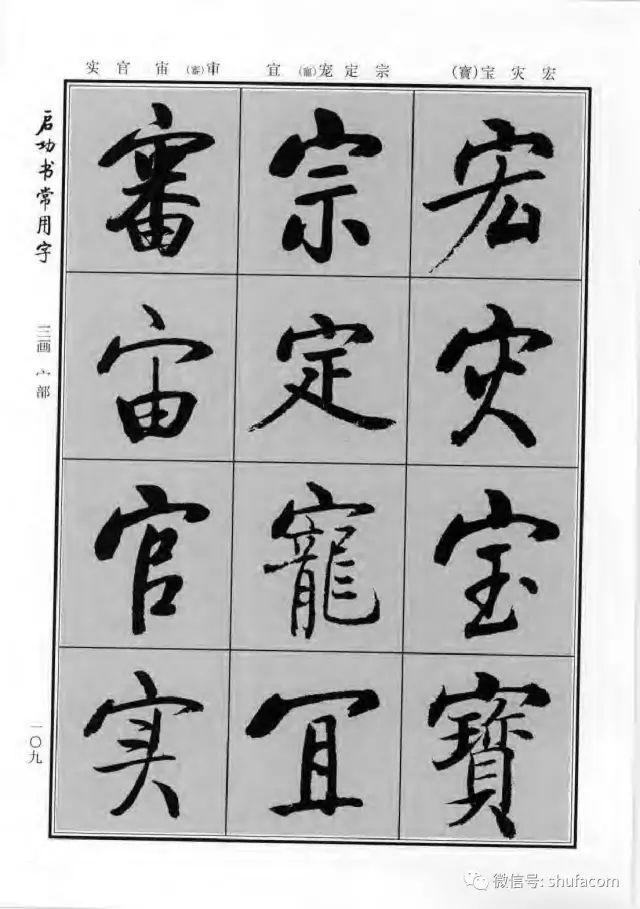 宏灾宝(寶)
宗定宠(寵)宜
审(審)宙官实
宏灾宝寶
宗定寵宜
審宙官实
启功书常用字
三画 宀部
一〇九
微信号: shufacom